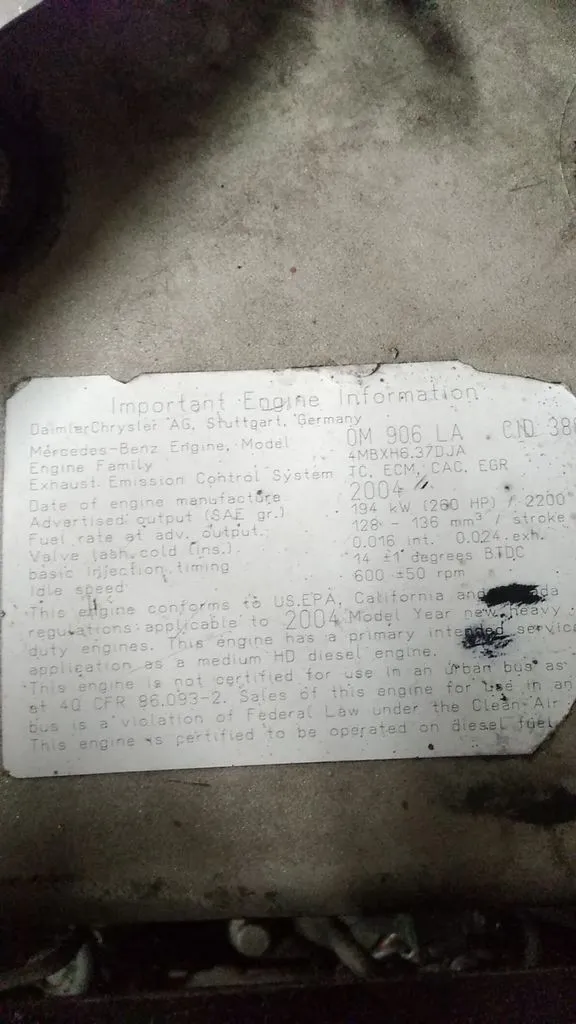 Important Engine Information
DaimlerChrysler AG, Stuttgart, Germany
Mercedes-Benz Engine, Model OM 906 LA CID 38
Engine Family 4MBXH6.37DJA
Exhaust Emission Control System TC, ECM, CAC, EGR
Date of engine manufacture 2004
Advertised output (SAE gr.) 194 kW (260 HP) / 2200
Fuel rate at adv. output. 128 - 136 mm³ / stroke
Valve lash cold (ins.) 0.016 int. 0.024 exh.
basic injection timing 14 ±1 degrees BTDC
Idle speed 600 ±50 rpm
This engine conforms to US.EPA, California and
regulations applicable to 2004 Model Year new heavy
duty engines. This engine has a primary intended service
application as a medium HD diesel engine.
This engine is not certified for use in an urban bus as
at 40 CFR 86.093-2. Sales of this engine for use in an
bus is a violation of Federal Law under the Clean Air
This engine is certified to be operated on diesel fuel